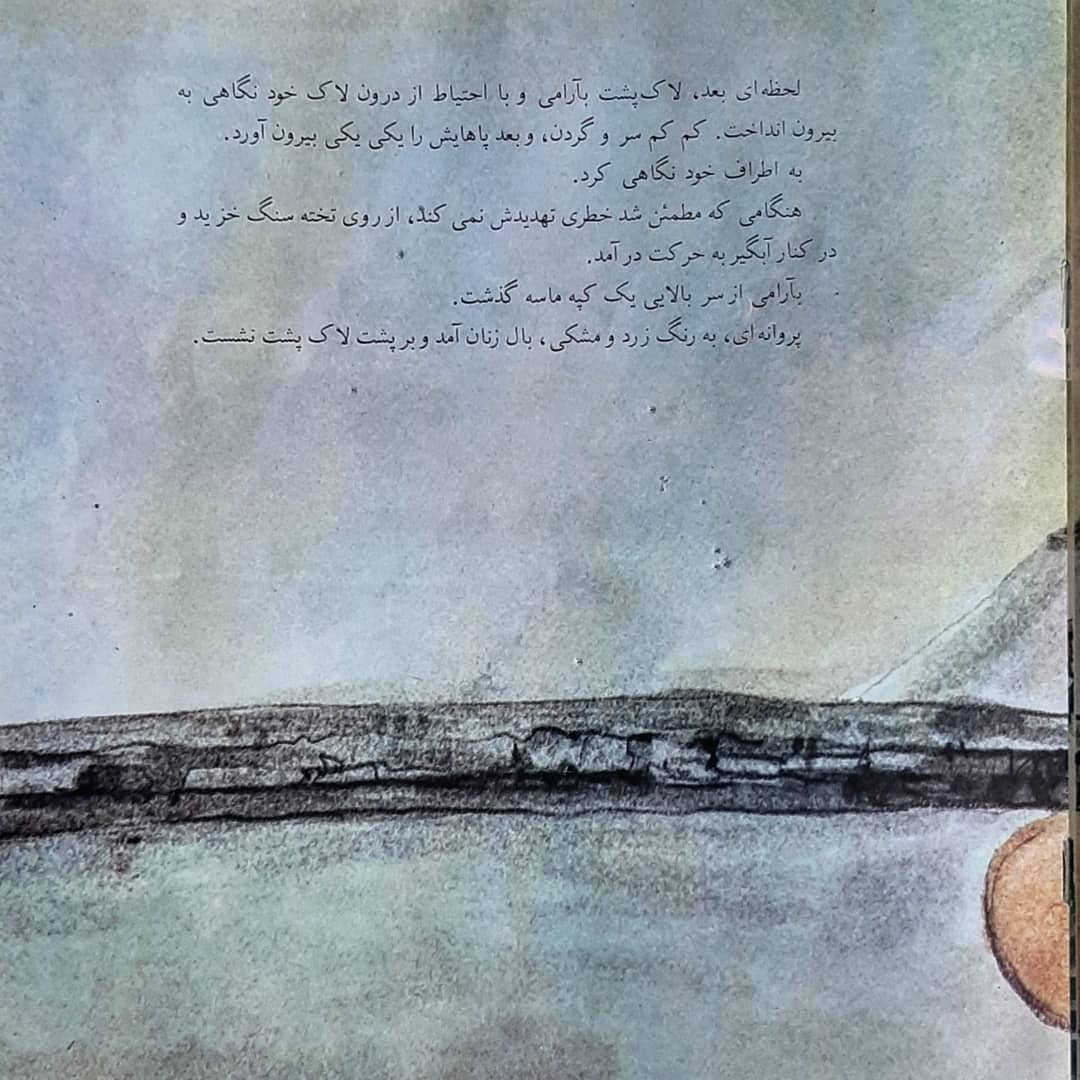 لحظه‌ای بعد، لاک‌پشت بآرامی و با احتیاط از درون لاک خود نگاهی به
بیرون انداخت. کم کم سر و گردن، و بعد پاهایش را یکی یکی بیرون آورد.
به اطراف خود نگاهی کرد.
هنگامی که مطمئن شد خطری تهدیدش نمی کند، از روی تخته سنگ خزید و
در کنار آبگیر به حرکت در آمد.
بآرامی از سر بالایی یک کپه ماسه گذشت.
پروانه‌ای، به رنگ زرد و مشکی، بال زنان آمد و بر پشت لاک پشت نشست.